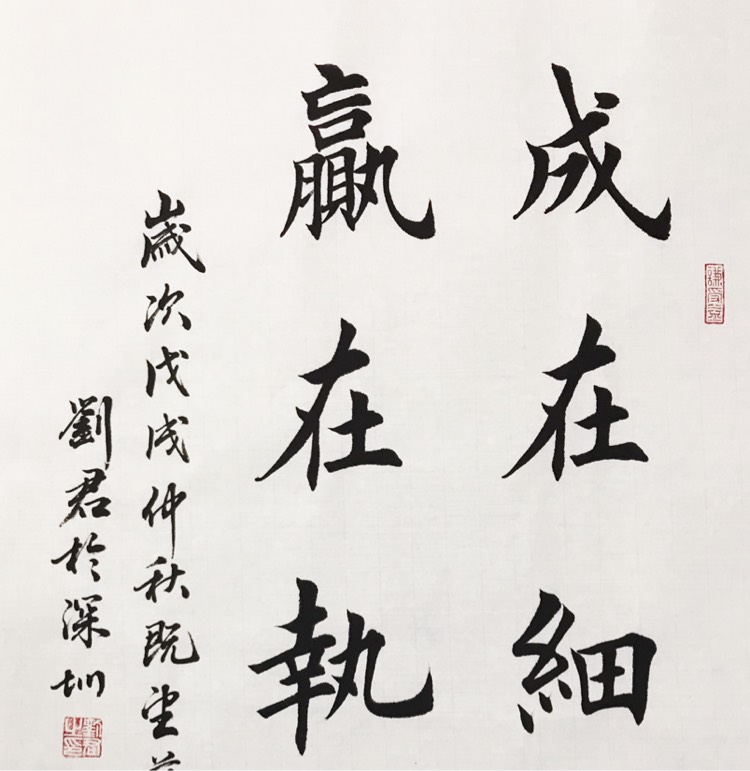 成在細
贏在執
歲次戊戌仲秋既望前
劉君於深圳